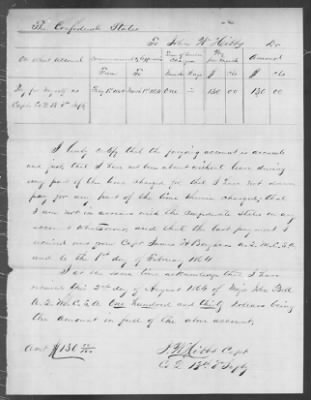 The Confederate States
To John W Hibbs Dr.
On what account Commencement & Expiration Term of Service Charged Pay per Month Amount
From To Months Days $ cts $ cts
Pay for myself as One " 130 00 130 00
Capt Co I 13 Va Infty
I hereby certify that the foregoing account is accurate
and just; that I have not been absent without leave during
any part of the time charged for; that I have not drawn
pay for any part of the time therein charged; that
I am not in arrears with the Confederate States on any
account whatsoever; and that the last payment I
received was from Capt James A.Q.M.C.S.A.
and to the day of February 1864
I at the same time acknowledge that I have
received this 2nd day of August 1864 of Majr John Bell
A.Q.M.C.S.A. One hundred and thirty dollars being
the amount in full of the above account.
Amt $130 00/100 J.W. Hibbs Capt
Co I 13th Va Infty